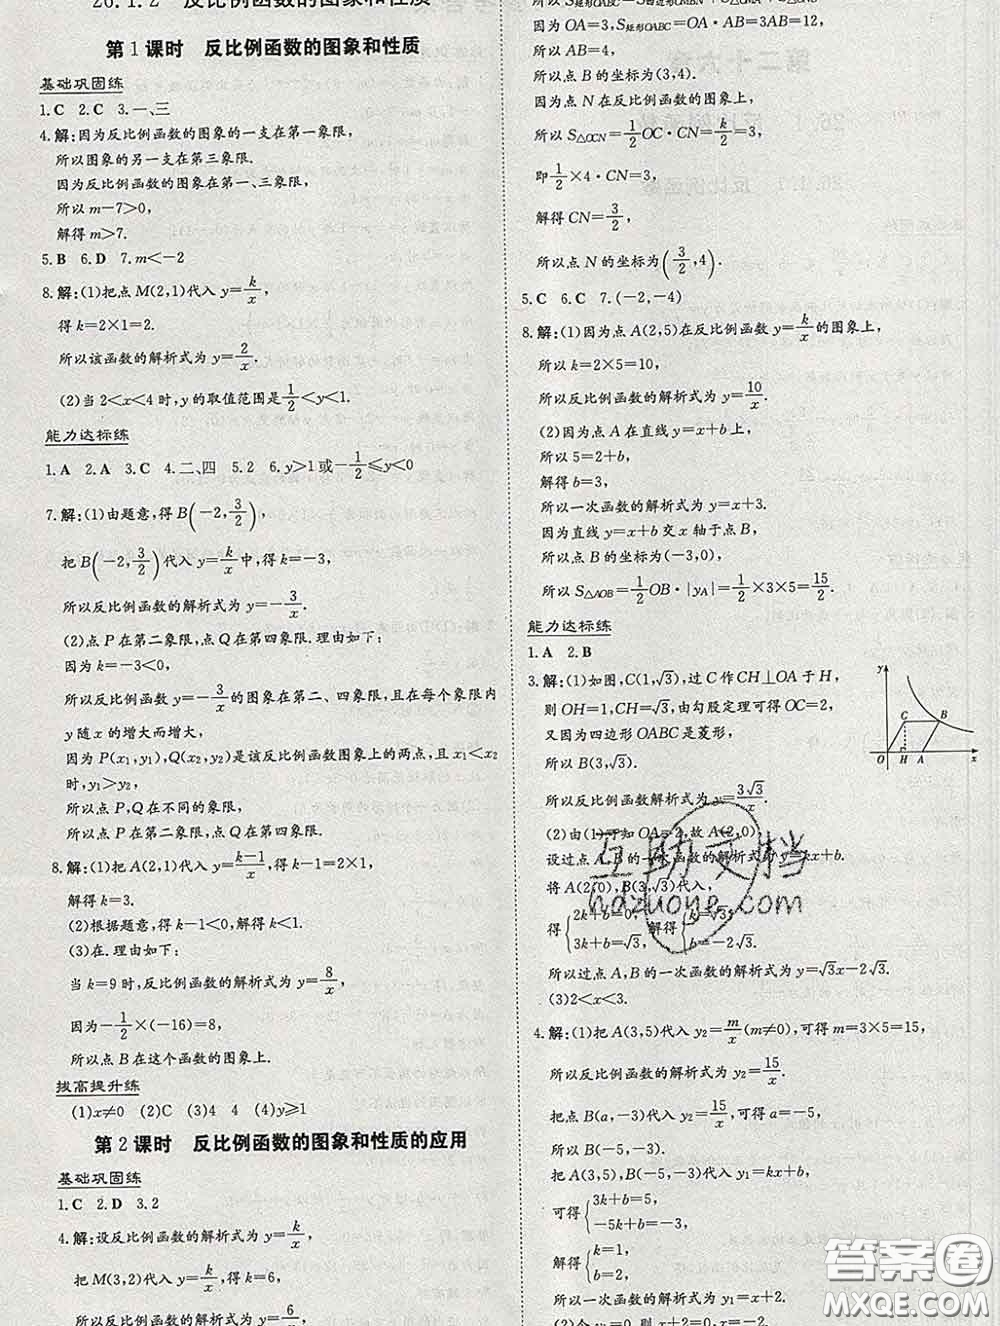 26.1.2 反比例函数的图象和性质
第1课时 反比例函数的图象和性质
基础巩固练
1.C 2.C 3.一、三
4.解:因为反比例函数的图象的一支在第一象限,
所以图象的另一支在第三象限.
因为反比例函数的图象在第一、三象限,
所以 m-7>0,
解得 m>7.
5.B 6.D 7.m<-2
8.解:(1)把点 M(2,1)代入 y=k/x,
得 k=2×1=2.
所以该函数的解析式为 y=2/x.
(2)当 2<x<4 时,y 的取值范围是 1/2<y<1.
能力达标练
1.A 2.A 3.C 4.二、四 5.2 6.y>1或-1/2≤y<0
7.解:(1)由题意,得 B(-2,3/2),
把 B(-2,3/2)代入 y=k/x 中,得 k=-3,
所以反比例函数的解析式为 y=-3/x.
(2)点 P 在第二象限,点 Q 在第四象限.理由如下:
因为 k=-3<0,
所以反比例函数 y=-3/x 的图象在第二、四象限,且在每个象限内
y 随 x 的增大而增大,
因为 P(x₁,y₁),Q(x₂,y₂)是该反比例函数图象上的两点,且 x₁<x₂
时,y₁>y₂,
所以点 P,Q 在不同的象限,
所以点 P 在第二象限,点 Q 在第四象限.
8.解:(1)把 A(2,1)代入 y=(k-1)/x,得 k-1=2×1,
解得 k=3.
(2)根据题意,得 k-1<0,解得 k<1.
(3)在.理由如下:
当 k=9 时,反比例函数的解析式为 y=8/x,
因为 -1/2×(-16)=8,
所以点 B 在这个函数的图象上.
拔高提升练
(1)x≠0 (2)C (3)4 4 (4)y≥1
第2课时 反比例函数的图象和性质的应用
基础巩固练
1.C 2.D 3.2
4.解:设反比例函数的解析式为 y=k/x,
把 M(3,2)代入 y=k/x,得 k=6,
所以反比例函数的解析式为 y=6/x
因为 OA=3,S矩形OABC
所以 AB=4,
所以点 B 的坐标为(3,4).
因为点 N 在反比例函数的图象上,
所以 S△OCN=1/2 OC·CN=k/2=3,
即 1/2×4·CN=3,
解得 CN=3/2,
所以点 N 的坐标为(3/2,4).
5.C 6.C 7.(-2,-4)
8.解:(1)因为点 A(2,5)在反比例函数 y=k/x 的图象上,
所以 k=2×5=10,
所以反比例函数的解析式为 y=10/x.
(2)因为点 A 在直线 y=x+b 上,
所以 5=2+b,
解得 b=3,
所以一次函数的解析式为 y=x+3.
因为直线 y=x+b 交 x 轴于点 B,
所以点 B 的坐标为(-3,0),
所以 S△AOB=1/2 OB·|yA|=1/2×3×5=15/2.
能力达标练
1.A 2.B
3.解:(1)如图,C(1,√3),过 C 作 CH⊥OA 于 H,
则 OH=1,CH=√3,由勾股定理可得 OC=2,
又因为四边形 OABC 是菱形,
所以 B(3,√3).
所以反比例函数解析式为 y=3√3/x.
y
C B
O H A x
(2)由(1)可知 OA=2,故 A(2,0)
设过点 A,B 的一次函数的解析式为 y=kx+b.
将 A(2,0),B(3,√3)代入,
得{2k+b=0, 3k+b=√3, 解得{k=√3, b=-2√3.
所以过点 A,B 的一次函数的解析式为 y=√3x-2√3.
(3)2<x<3.
4.解:(1)把 A(3,5)代入 y₂=m/x(m≠0),可得 m=3×5=15,
所以反比例函数的解析式为 y₂=15/x.
把点 B(a,-3)代入 y₂=15/x,可得 a=-5,
所以 B(-5,-3).
把 A(3,5),B(-5,-3)代入 y₁=kx+b,
可得{3k+b=5, -5k+b=-3,
解得{k=1, b=2.
所以一次函数的解析式为 y₁=x+2.
互助文档
hdzuoye.com
答案圈
MXQE.COM